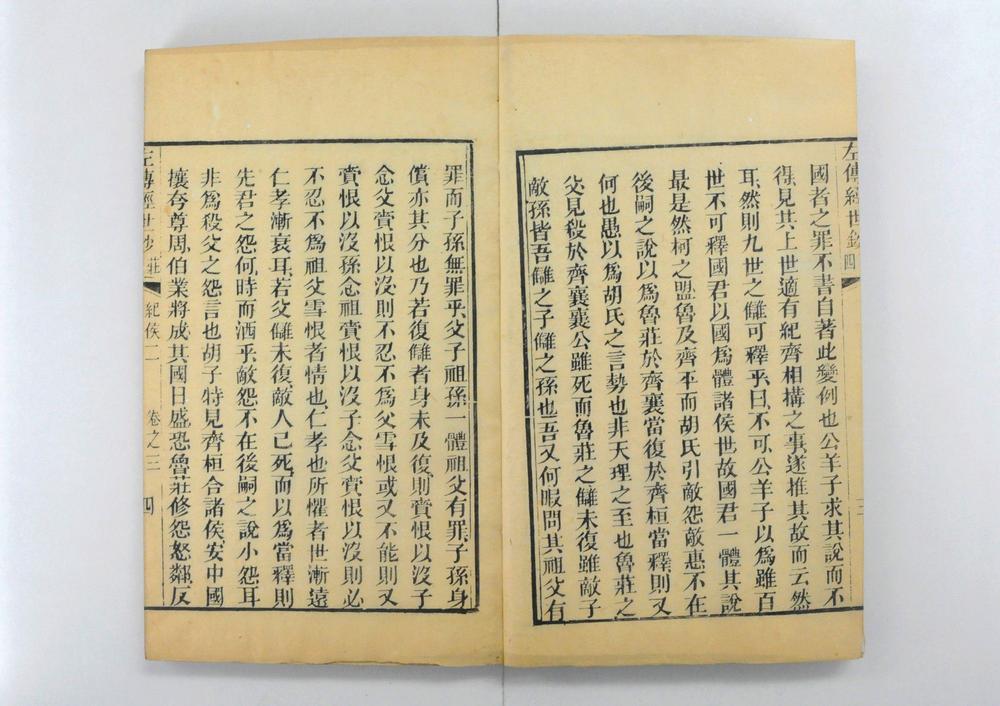 左傳經世鈔 四
國者之罪不書自著此變例也公羊子求其說而不
得見其上世適有紀齊相構之事遂推其故而云然
耳然則九世之讎可釋乎曰不可公羊子以爲雖百
世不可釋國君以國爲體諸侯世故國君一體其說
最是然柯之盟魯及齊平而胡氏引敵怨敵惠不在
後嗣之說以爲魯莊於齊襄當復於齊桓當釋則又
何也愚以爲胡氏之言勢也非天理之至也魯莊之
父見殺於齊襄襄公雖死而魯莊之讎未復雖敵子
敵孫皆吾讎之子讎之孫也吾又何暇問其祖父有
罪而子孫無罪乎父子祖孫一體祖父有罪子孫身
償亦其分也乃若復讎者身未及復則賫恨以沒子
念父賫恨以沒則不忍不爲父雪恨或又不能則又
賫恨以沒孫念祖賫恨以沒子念父賫恨以沒則必
不忍不爲祖父雪恨者情也仁孝也所懼者世漸遠
仁孝漸衰耳若父讎未復敵人已死而以爲當釋則
先君之怨何時而洒乎敵怨不在後嗣之說小怨耳
非爲殺父之怨言也胡子特見齊桓合諸侯安中國
攘夸尊周伯業將成其國日盛恐魯莊修怨怒鄰反
左傳經世鈔 莊 紀侯二 卷之三 四